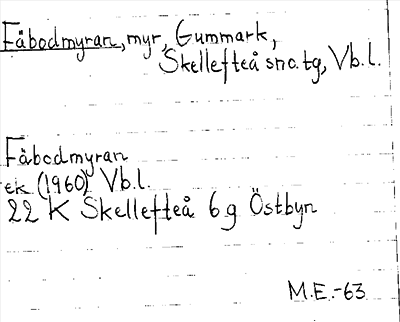 Fåbodmyran, myr, Gummark,
Skellefteå sno.tg, Vb.l.
Fåbodmyran
ek (1960) Vb.l.
22 K Skellefteå 6g Östbyn
M.E.-63